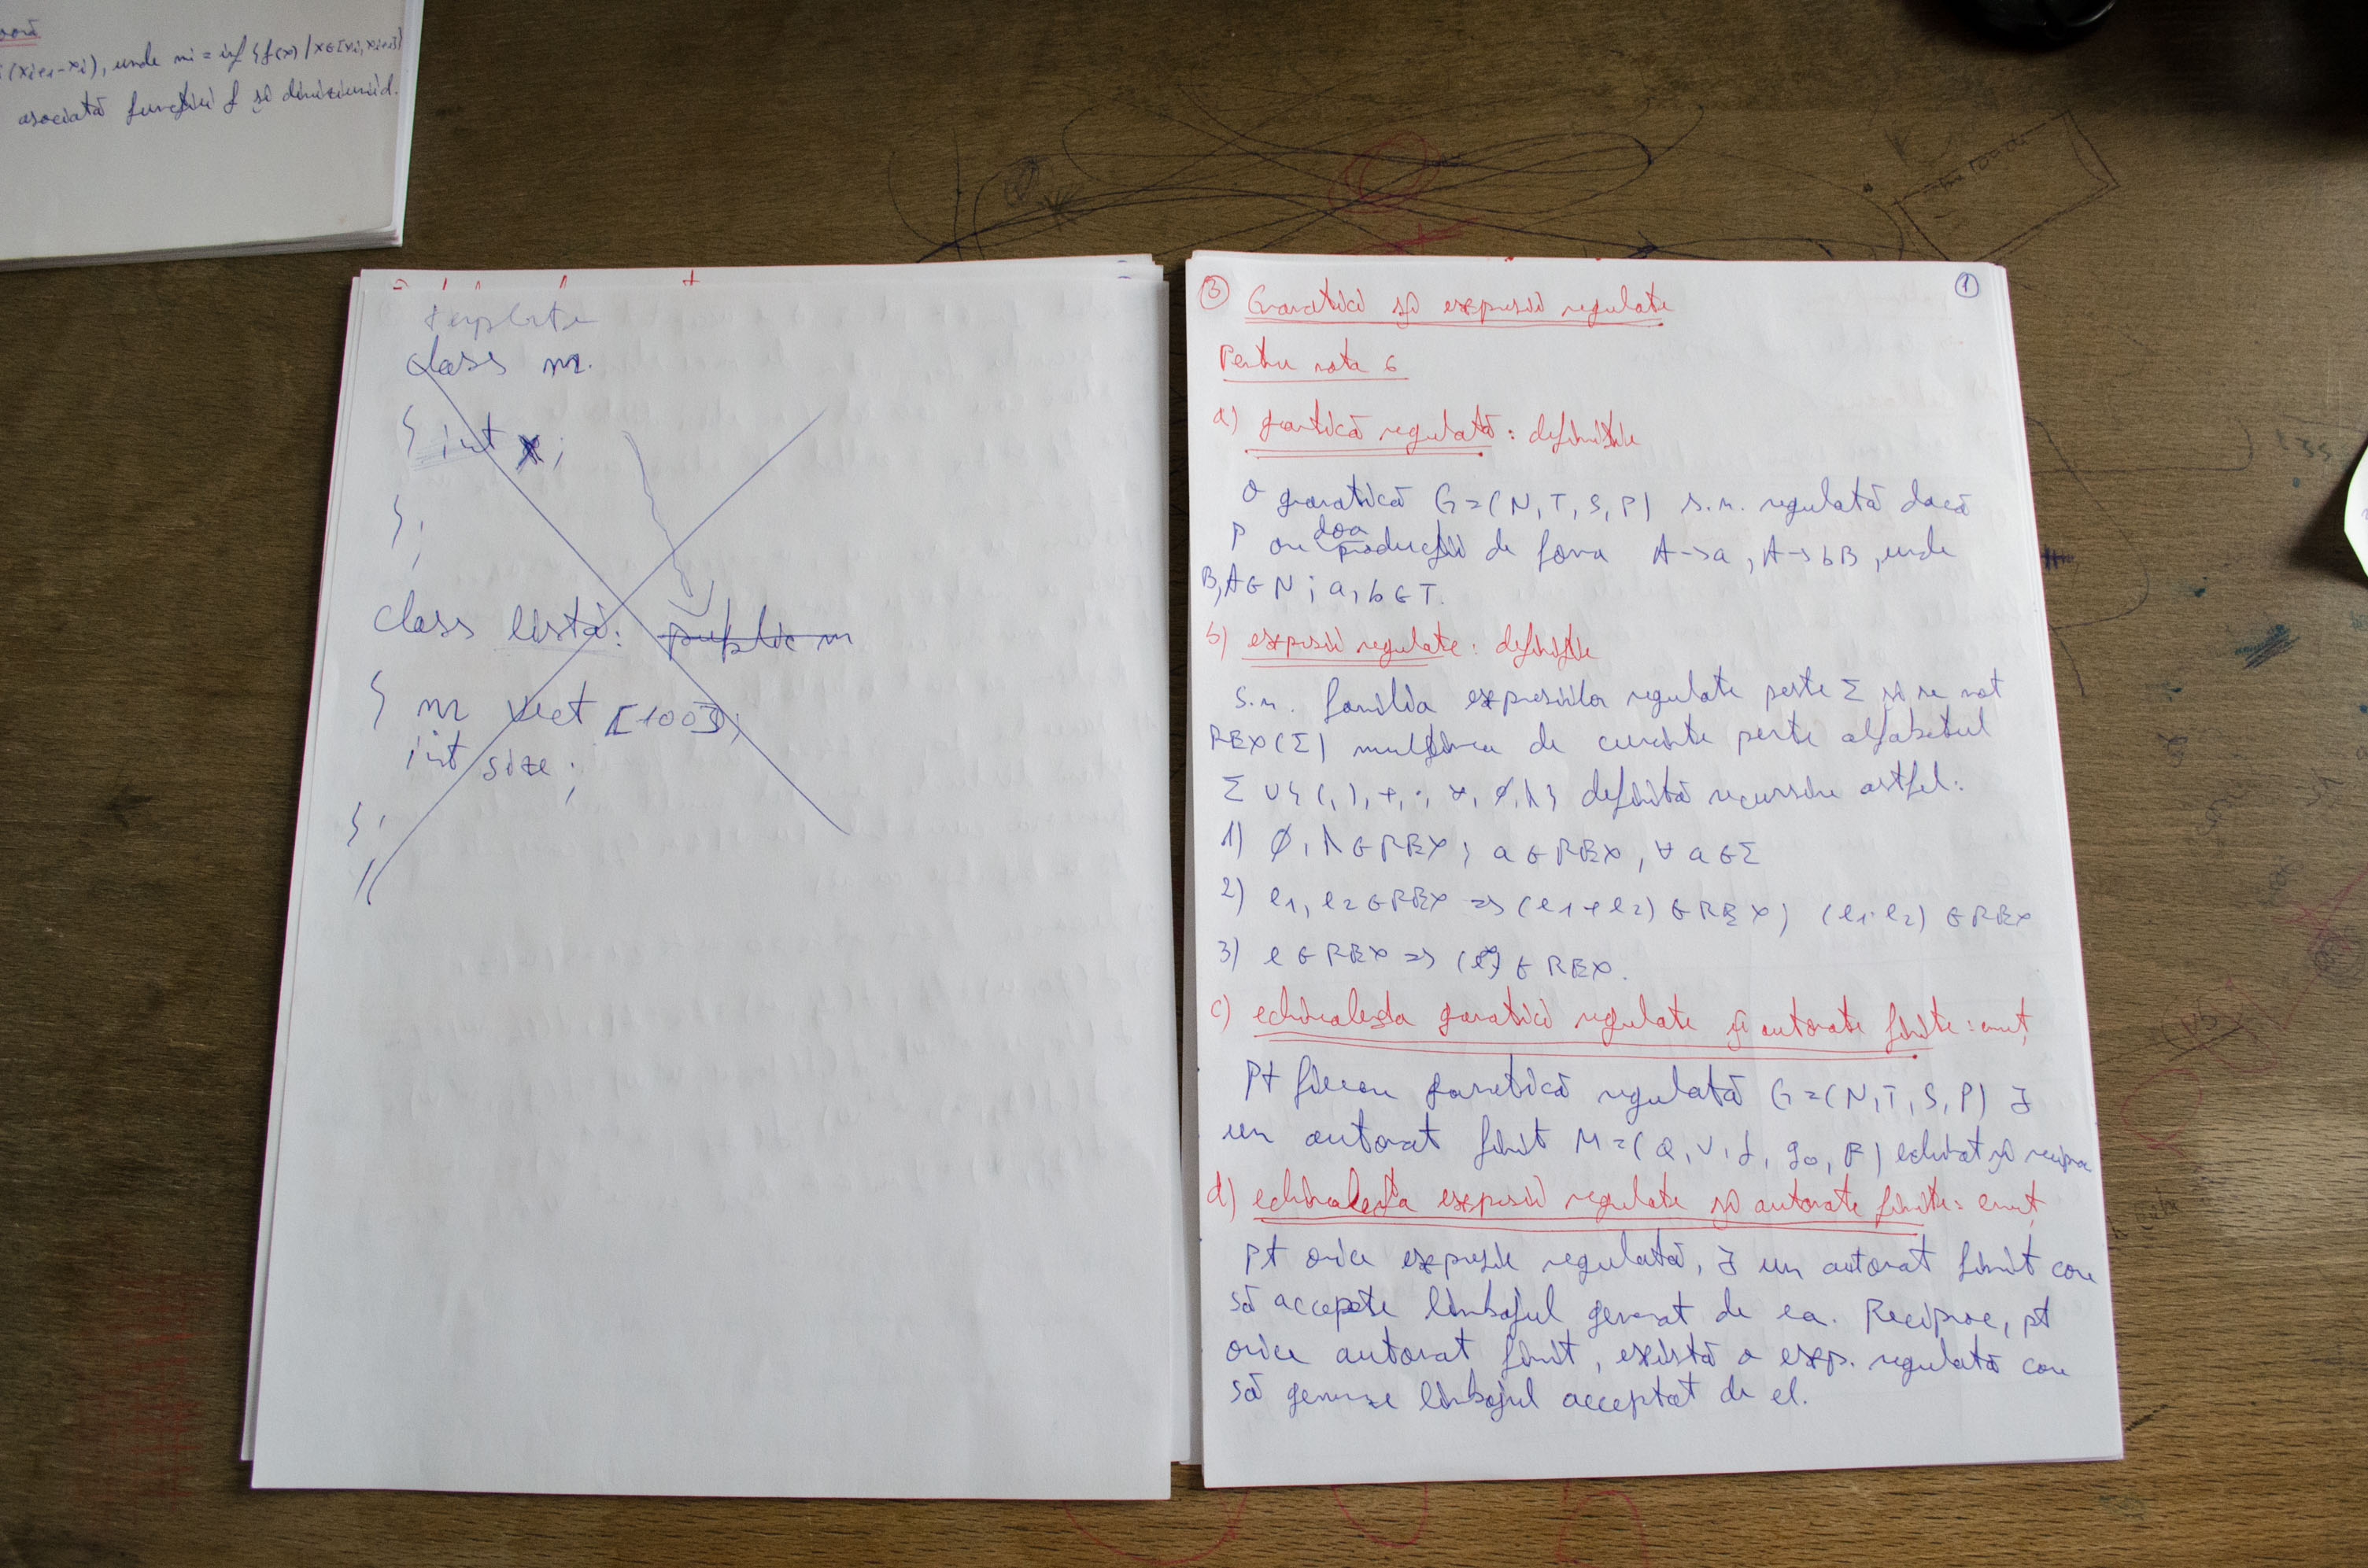 (xi+1-xi), unde mi = inf {f(x) | x∈[xi, xi+1]}
asociată funcției f și diviziunii d.
template
class m
{ int x;
};
class listă: public m
{ m vect [100];
int size;
};
③ Gramatici și expresii regulate ①
Pentru nota 6
a) gramatică regulată: definiție
O gramatică G=(N,T,S,P) s.n. regulată dacă
P are doar producții de forma A->a, A->bB, unde
B,A∈N; a,b∈T.
b) expresii regulate: definiție
S.n. familia expresiilor regulate peste Σ și se not
REX(Σ) mulțimea de cuvinte peste alfabetul
Σ∪{(,),+,·,*,∅,λ} definită recursiv astfel:
1) ∅,λ∈REX; a∈REX, ∀a∈Σ
2) e1,e2∈REX => (e1+e2)∈REX; (e1·e2)∈REX
3) e∈REX => (e*)∈REX.
c) echivalența gramatici regulate și automate finite: enunț
Pt fiecare gramatică regulată G=(N,T,S,P) ∃
un automat finit M=(Q,V,f,q0,F) echivat și reciproc
d) echivalența expresii regulate și automate finite: enunț
Pt orice expresie regulată, ∃ un automat finit care
să accepte limbajul generat de ea. Reciproc, pt
orice automat finit, există o exp. regulată care
să genereze limbajul acceptat de el.